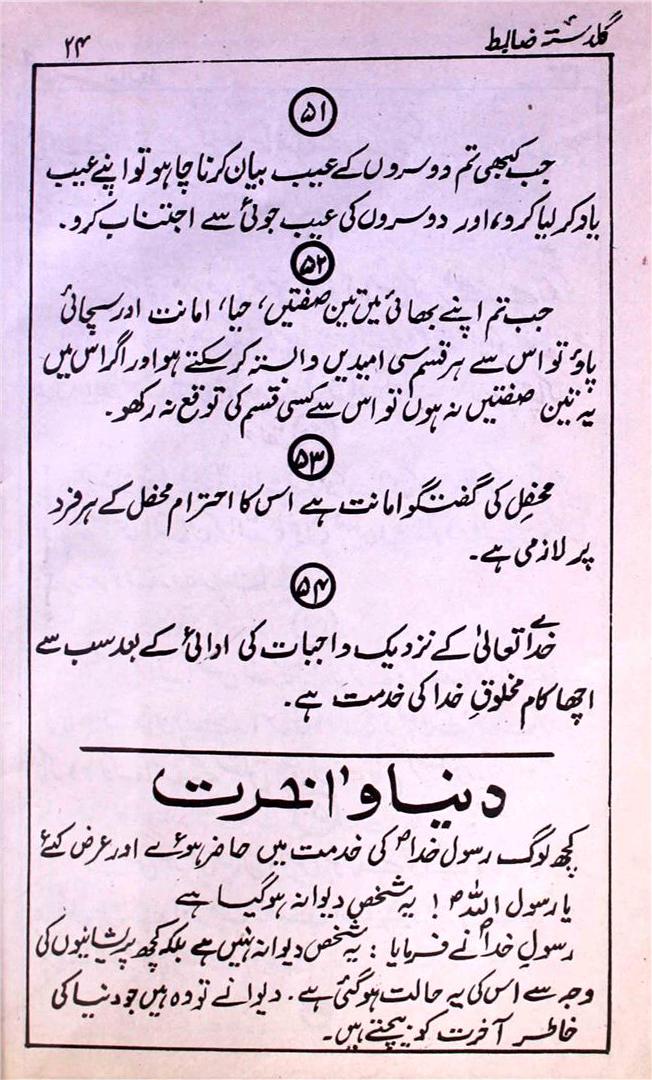 گلدستہ ضابط
۲۴
۵۱
جب کبھی تم دوسروں کے عیب بیان کرنا چاہو تو اپنے عیب
یاد کر لیا کرو، اور دوسروں کی عیب جوئی سے اجتناب کرو۔
۵۲
جب تم اپنے بھائی میں تین صفتیں، حیا، امانت اور سچائی
پاؤ تو اس سے ہر قسم سی امیدیں وابستہ کر سکتے ہو اور اگر اس میں
یہ تین صفتیں نہ ہوں تو اس سے کسی قسم کی توقع نہ رکھو۔
۵۳
محفل کی گفتگو امانت ہے اس کا احترام محفل کے ہر فرد
پر لازمی ہے۔
۵۴
خدا تعالیٰ کے نزدیک واجبات کی ادائی کے بعد سب سے
اچھا کام مخلوقِ خدا کی خدمت ہے۔
دنیا و آخرت
کچھ لوگ رسول خداؐ کی خدمت میں حاضر ہوئے اور عرض کئے
یا رسول اللہؐ! یہ شخص دیوانہ ہو گیا ہے
رسولِ خداؐ نے فرمایا: یہ شخص دیوانہ نہیں ہے بلکہ کچھ پریشانیوں کی
وجہ سے اس کی یہ حالت ہو گئی ہے۔ دیوانے تو وہ ہیں جو دنیا کی
خاطر آخرت کو بیچتے ہیں۔